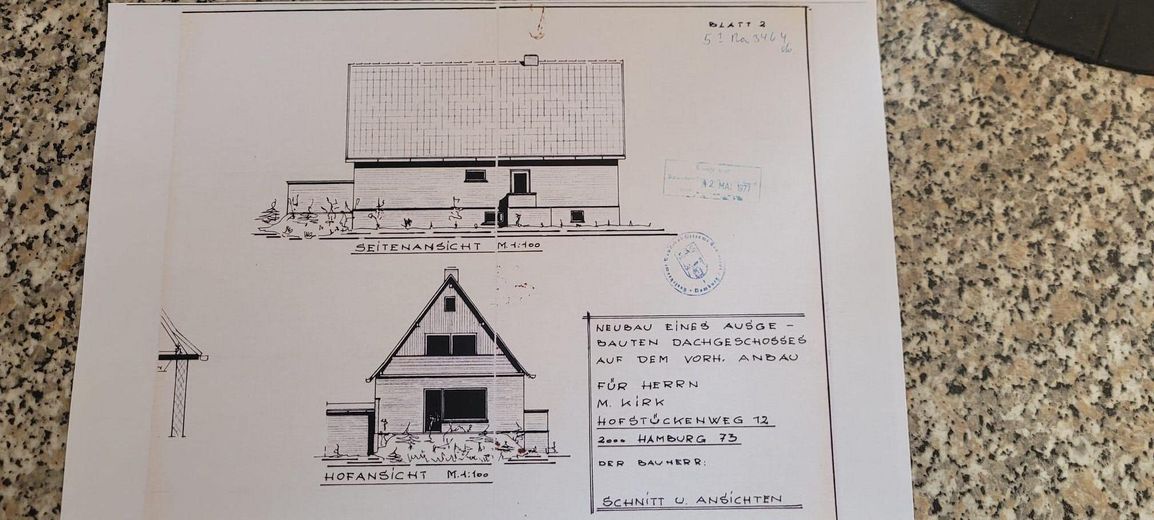 BLATT 2
SEITENANSICHT M.1:100
12. MAI 1977
NEUBAU EINES AUSGE-
BAUTEN DACHGESCHOSSES
AUF DEM VORH. ANBAU
FÜR HERRN
M. KIRK
HOFSTÜCKENWEG 12
2000 HAMBURG 73
DER BAUHERR:
HOFANSICHT M.1:100
SCHNITT U. ANSICHTEN